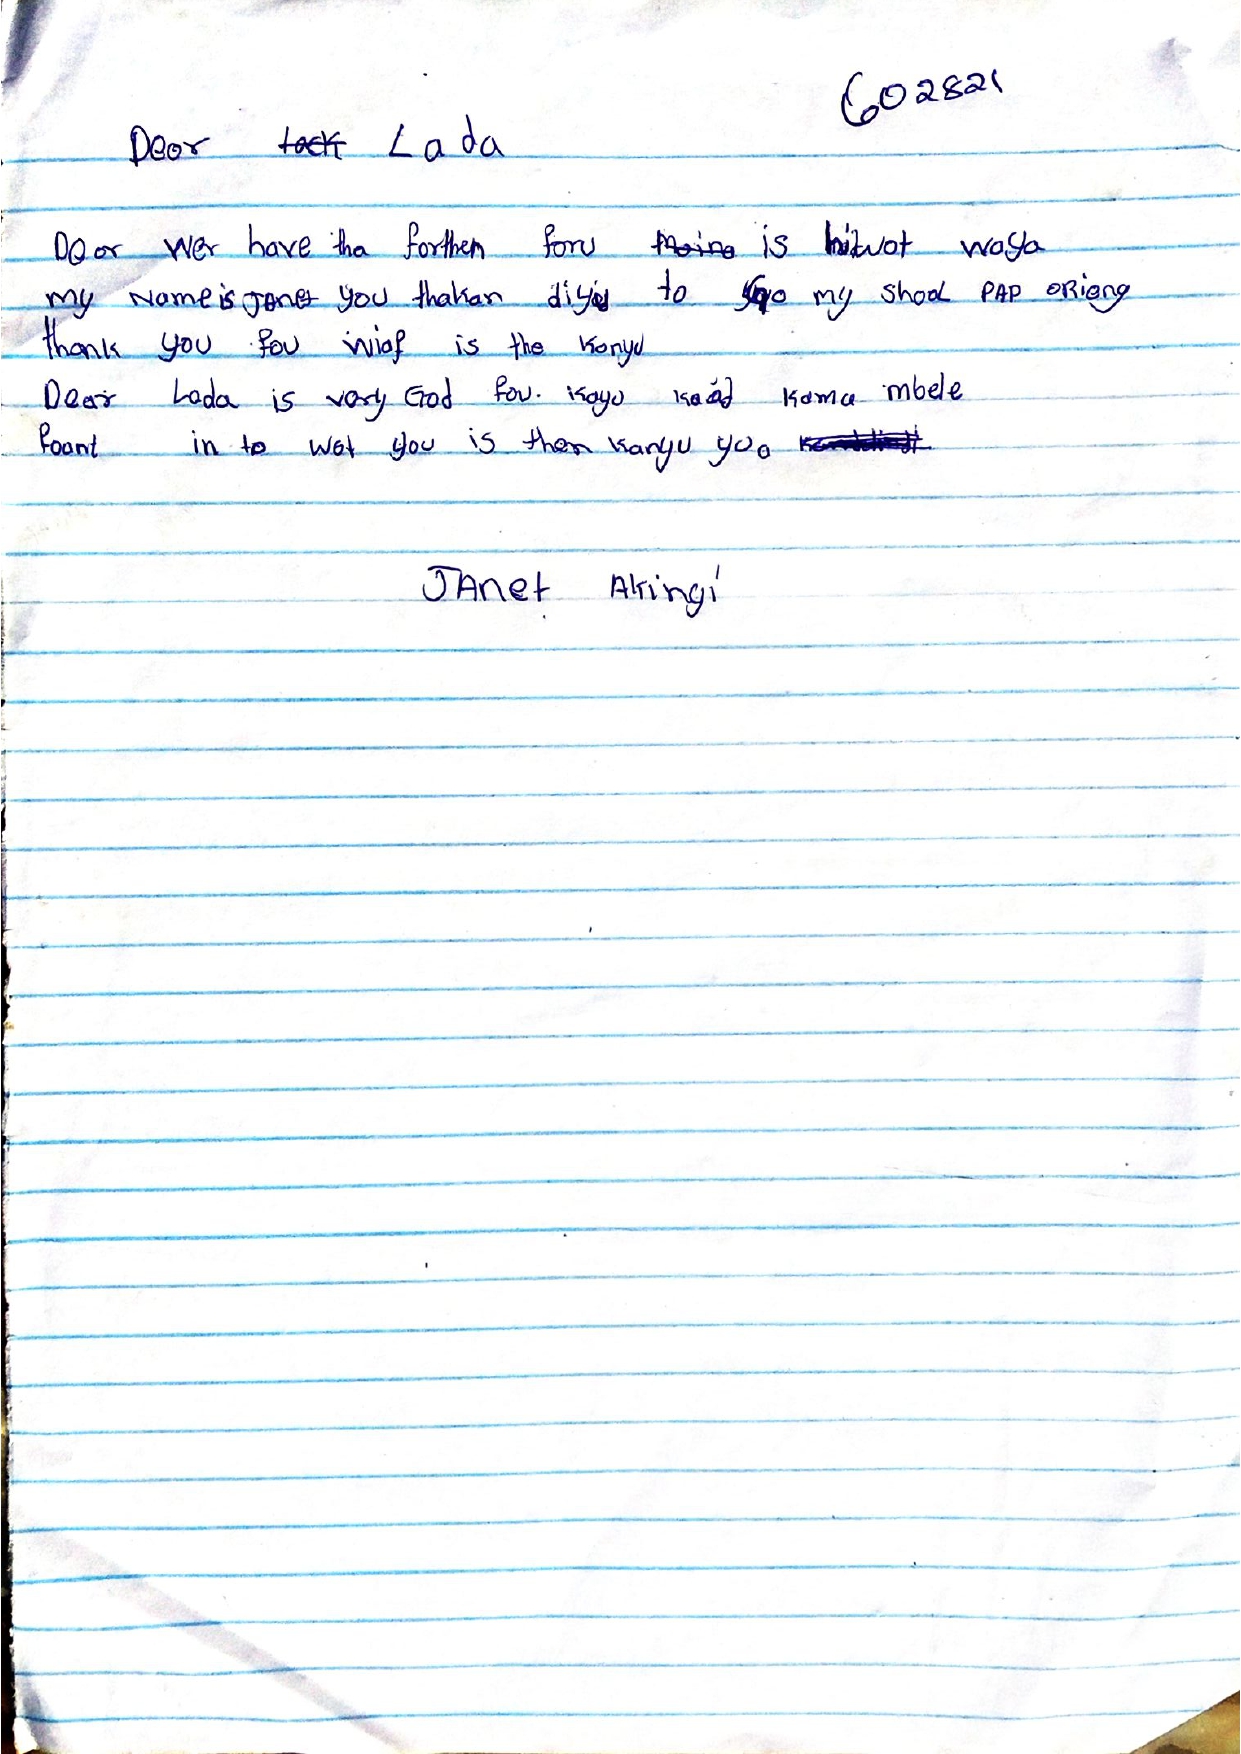 602821
Deor Lada
Deor wer have tha forthen foru is hitwot waya
my Name is Janet you thakan to go my shool PAP ORiang
thank you fou wiaf is the Konyu
Dear Lada is very God fou. Kayu kaad kama mbele
foant in to wot you is then kanyu yoo
JAnet Akingi